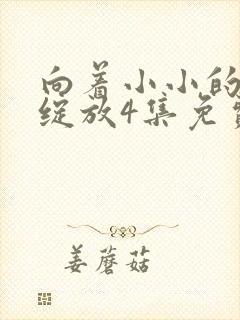 向着小小的
绽放4集免
姜蘑菇